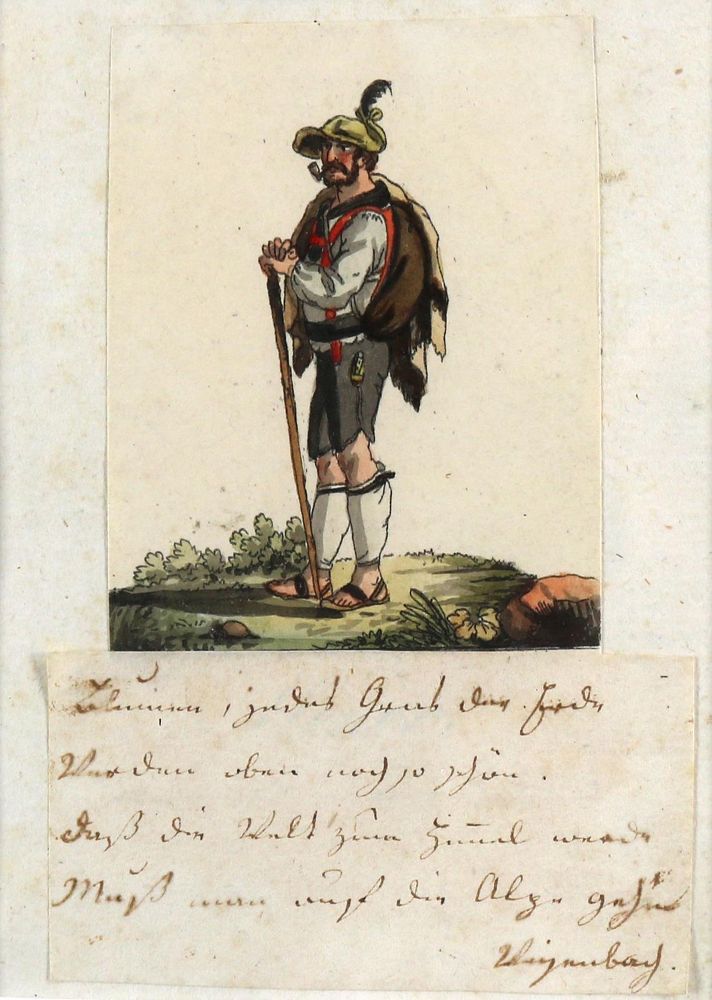 Blumen, jedes Gras der Erde
Werden oben noch so schön.
Daß die Welt zum Himel werde
Muß man auf die Alpe gehn
Weizenbach.